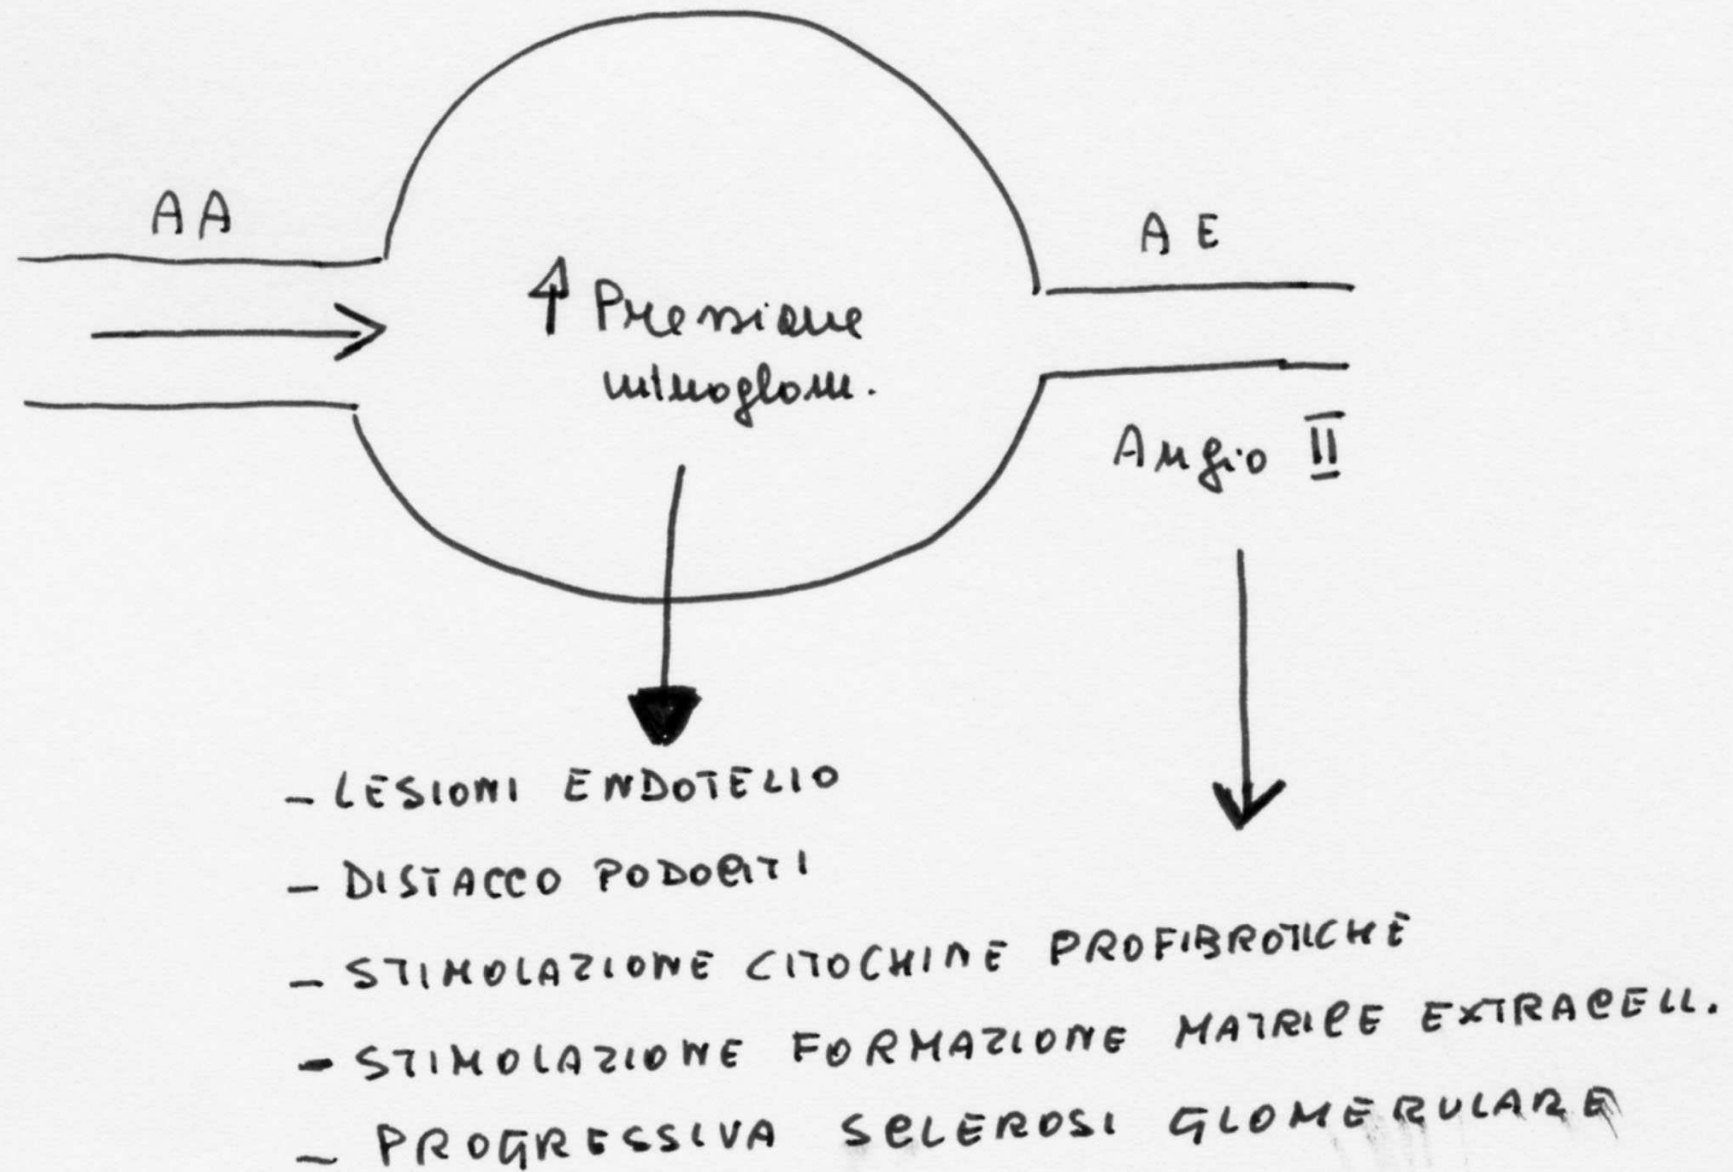 AA
AE
↑ Pressione
intraglom.
Angio II
- LESIONI ENDOTELIO
- DISTACCO PODOCITI
- STIMOLAZIONE CITOCHINE PROFIBROTICHE
- STIMOLAZIONE FORMAZIONE MATRICE EXTRACELL.
- PROGRESSIVA SCLEROSI GLOMERULARE